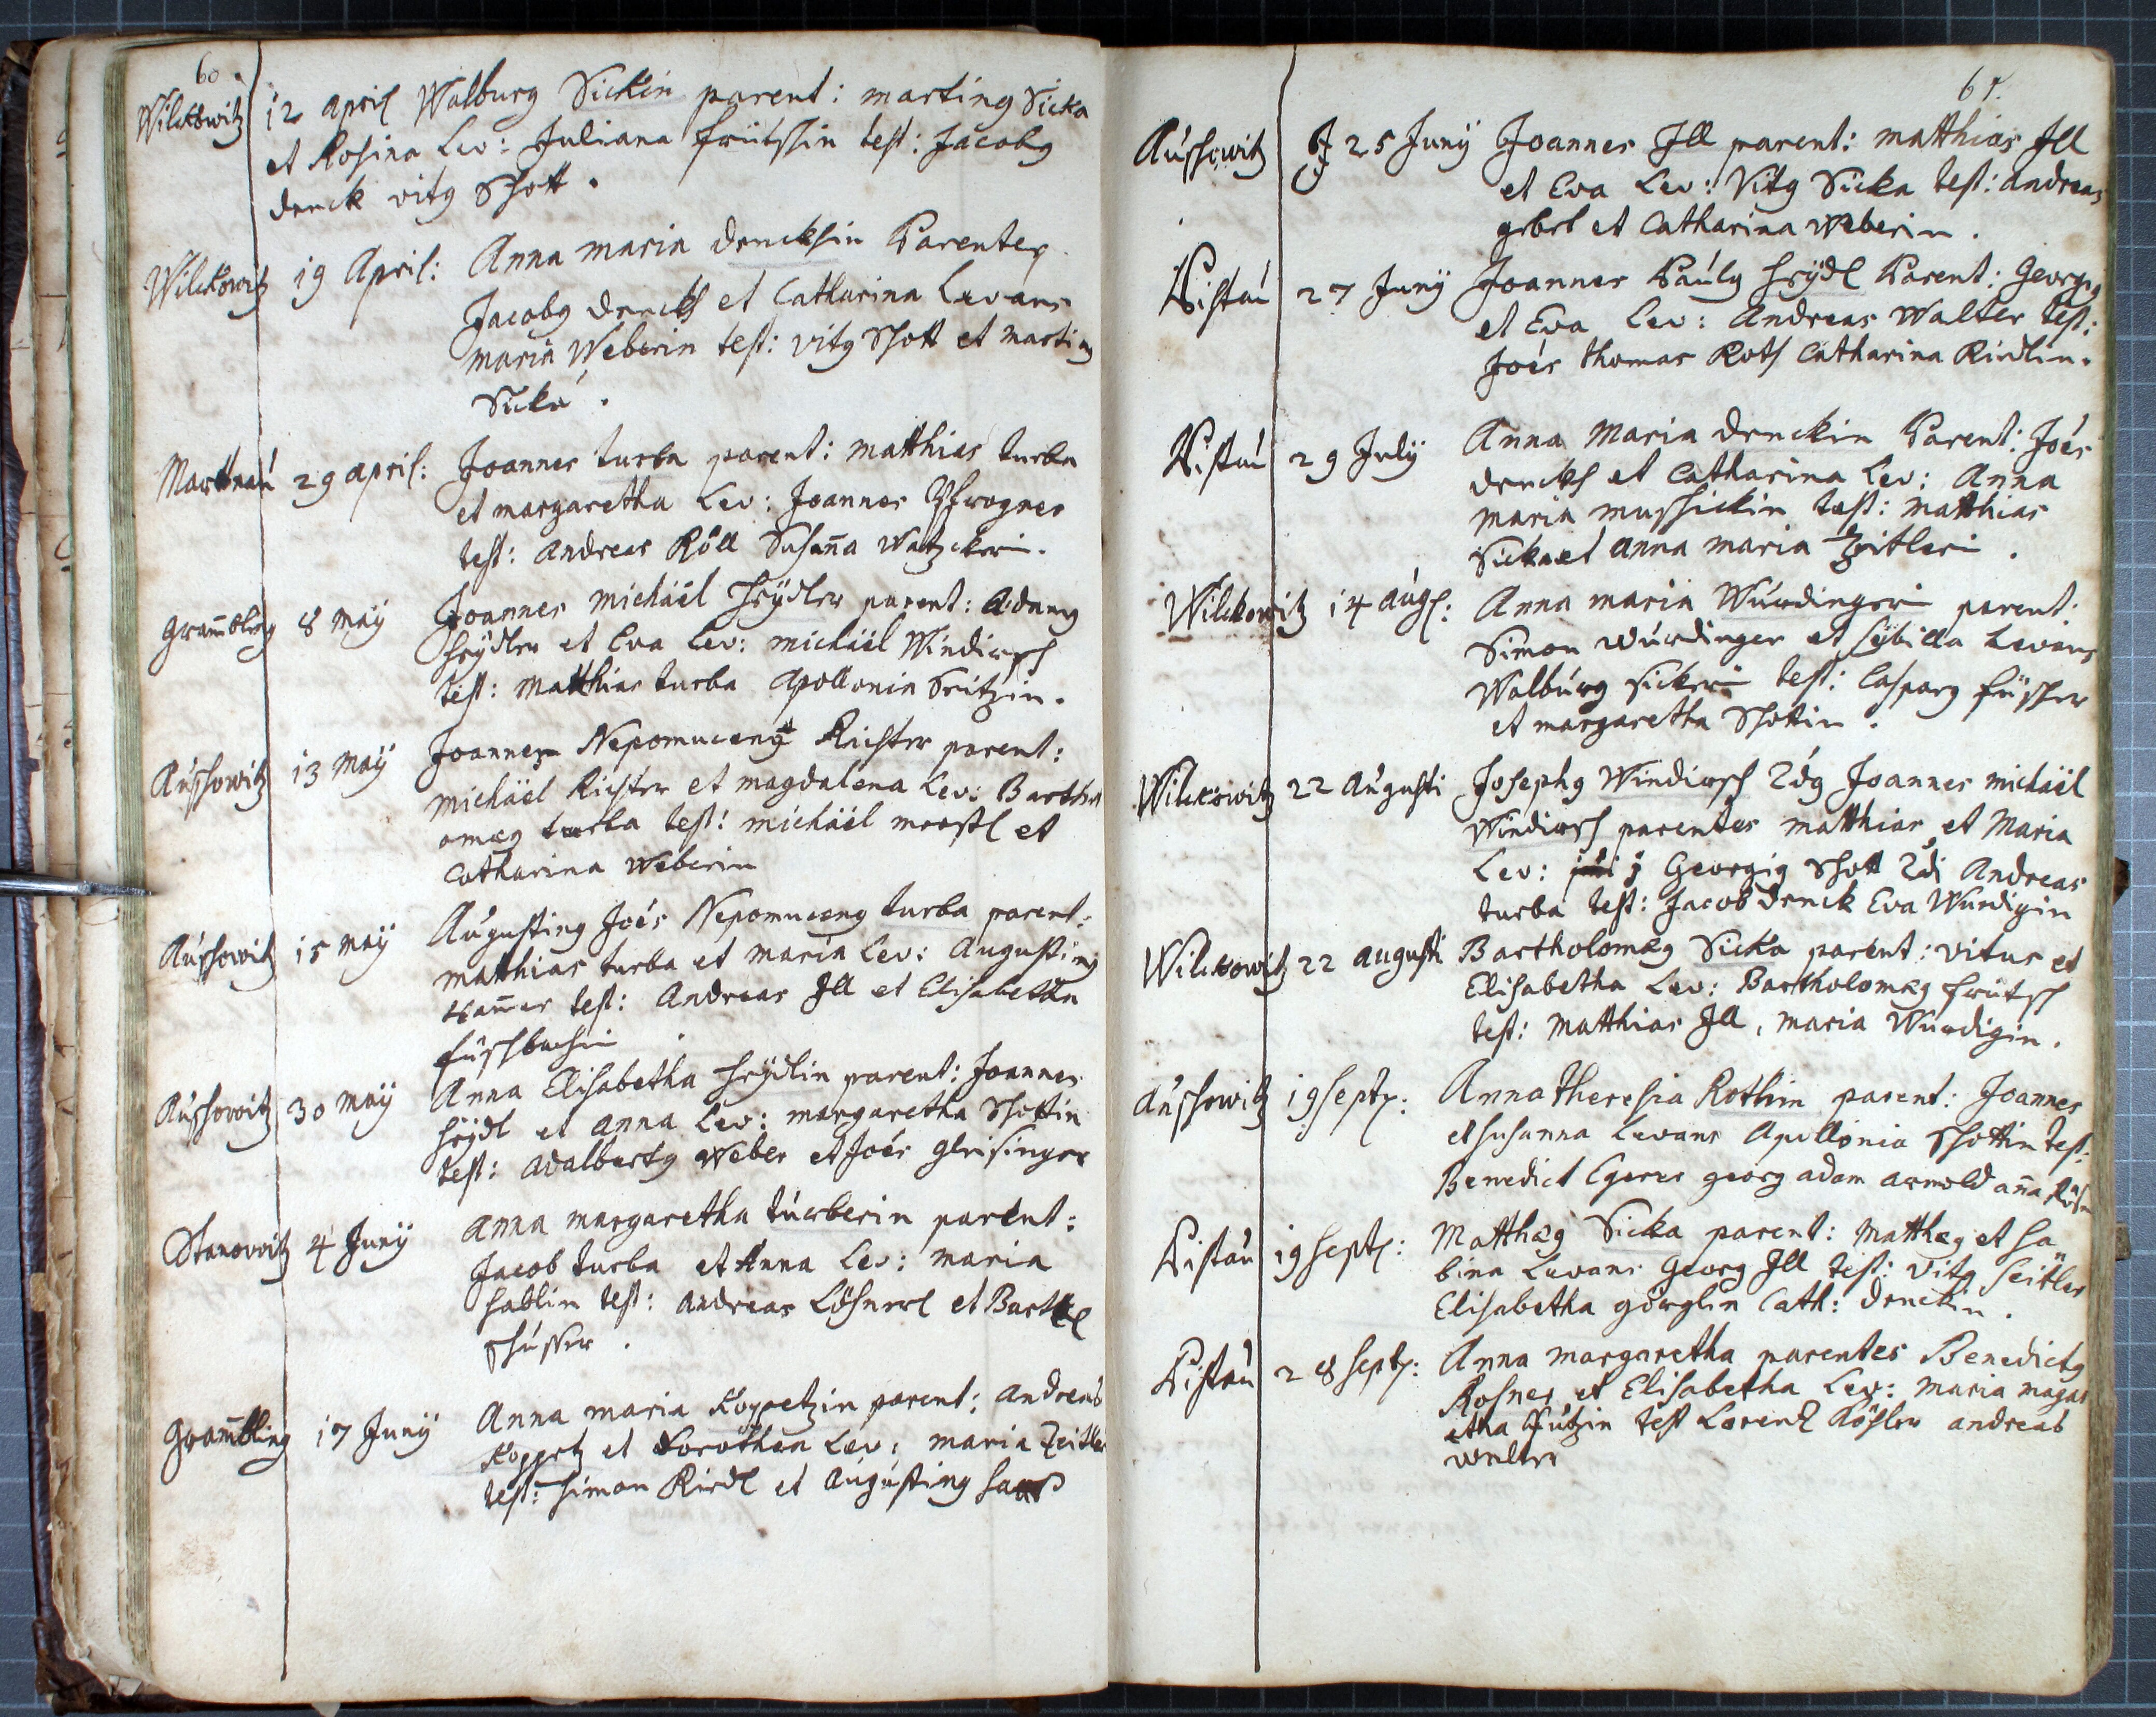 60
Wilckowitz 12 April Walburg Sickin parent: marting Sicka
et Rosina Lev: Juliana test: Jacobg
Denck vitg Schott.
Wilckowitz 19 April: Anna maria Dencksin Parenteg
Jacobg Denck et Catharina Levans
maria Weberin test: vitg Schott et marting
Sicka.
Martnau 29 april: Joannes turba parent: matthias turba
et margaretha Lev: Joannes
test: Andreas Röll Susana
8 may Joannes michäel Heÿdler parent: Adamg
Heÿdler et Eva Lev: michäel Windirsch
test: matthias turba Apollonia Seitzin.
Auschowitz 13 may Joannem Nepomuceng Richter parent:
michäel Richter et magdalena Lev: Barthol
omæg turba test: michäel et
Catharina Weberin
Auschowitz 15 may Augusting Joēs Nepomuceng turba parent:
matthias turba et maria Lev: Augusting
Hamer test: Andreas Ill et Elisabetha
Auschowitz 30 may Anna Elisabetha Heÿdlin parent: Joannes
Heÿdl et anna Lev: margaretha Schottin
test: Adalbertg Weber et Joēs gleisinger
Stanowitz 4 Junÿ Anna margaretha turberin parent:
Jacob turba et Anna Lev: maria
test: Andreas Lösnerl et Barthl
Gramling 17 Junÿ Anna maria Koppetzin parent: andreas
Koppetz et Dorothea Lev: maria Zeitler
test: simon Riedl et Augusting
61.
Auschowitz 25 Junÿ Joannes Ill parent: matthias Ill
et Eva Lev: Vitg Sicka test: andreas
et Catharina Weberin.
27 Junÿ Joannes Paulg Heÿdl Parent: Georgig
et Eva Lev: Andreas Walter test:
Joēs thomas Roth Catharina Riedlin.
29 Julÿ Anna Maria Denckin Parent: Joēs
Denck et Catharina Lev: Anna
maria muschickin test: matthias
Sicka et anna maria Zeitleri.
Wilckowitz 14 aug: Anna maria Würdingeri parent:
Simon würdinger et Sybilla Levans
Walburg sickeri test: Casparg fischer
et margaretha Schottin.
Wilckowitz 22 Augusti Josephg Windirsch 2dg Joannes michäel
Windirsch parentes matthias et Maria
Lev: Georgig Schott 2di Andreas
turba test: Jacob Denck Eva Würdigin
Wilckowitz 22 augusti Bartholomæg Sicka parent: vitus et
Elisabetha Lev: Bartholomæg
test: matthias Ill, maria Würdigin.
Auschowitz 19 sept: Anna theresia Rothin parent: Joannes
et susanna Levans Apollonia Schottin test:
Benedict Egerer georg adam arnold ana
19 sept: Matthæg Sicka parent: matthæg et sa
bina Levans Georg Ill test: vitg Seitler
Elisabetha görglin Cath: Denckin.
28 sept: Anna margaretha parentes Benedictg
Rosner et Elisabetha Lev: maria magar
etha test Lorentz Rösler andreas
walter